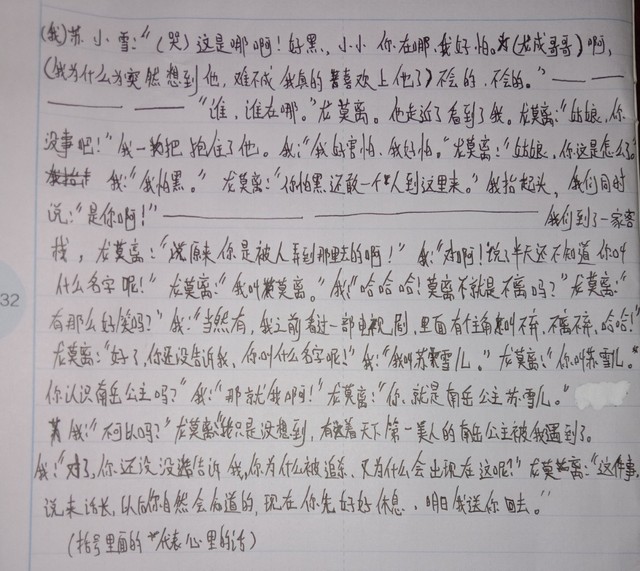 (我)苏小雪:“(哭)这是哪啊!好黑、小小你在哪、我好怕。(龙成哥哥)啊,
(我为什么会突然想到他,难不成我真的喜欢上他了)不会的,不会的。”————
————“谁,谁在哪。”龙莫离。他走近了看到了我。龙莫离:“姑娘,你
没事吧!”我一把抱住了他。我:“我好害怕、我好怕。”龙莫离:“姑娘,你这是怎么了。”
我:“我怕黑。”龙莫离:“你怕黑还敢一个人到这里来。”我抬起头,我们同时
说:“是你啊!”————————我们到了一家客
栈,龙莫离:“说原来你是被人弄到那里去的啊!”我:“对啊!说了半天还不知道你叫
什么名字呢!”龙莫离:“我叫莫离。”我:“哈哈哈!莫离不就是不离吗?”龙莫离:“
有那么好笑吗?”我:“当然有,我之前看过一部电视剧,里面有个主角叫不弃,不离不弃、哈哈!”
龙莫离:“好了,你还没告诉我、你叫什么名字呢!”我:“我叫苏雪儿。”龙莫离:“你叫苏雪儿。”
你认识南岳公主吗?”我:“那就我啊!”龙莫离:“你、就是南岳公主苏雪儿。”
我:“不可以吗?”龙莫离:“我只是没想到,有着天下第一美人的南岳公主被我遇到了。
我:“对了,你还没告诉我,你为什么被追杀、又为什么会出现在这呢?”龙莫离:“这件事,
说来话长,以后你自然会知道的,现在你先好好休息、明日我送你回去。”
(括号里面的代表心里的话)
32